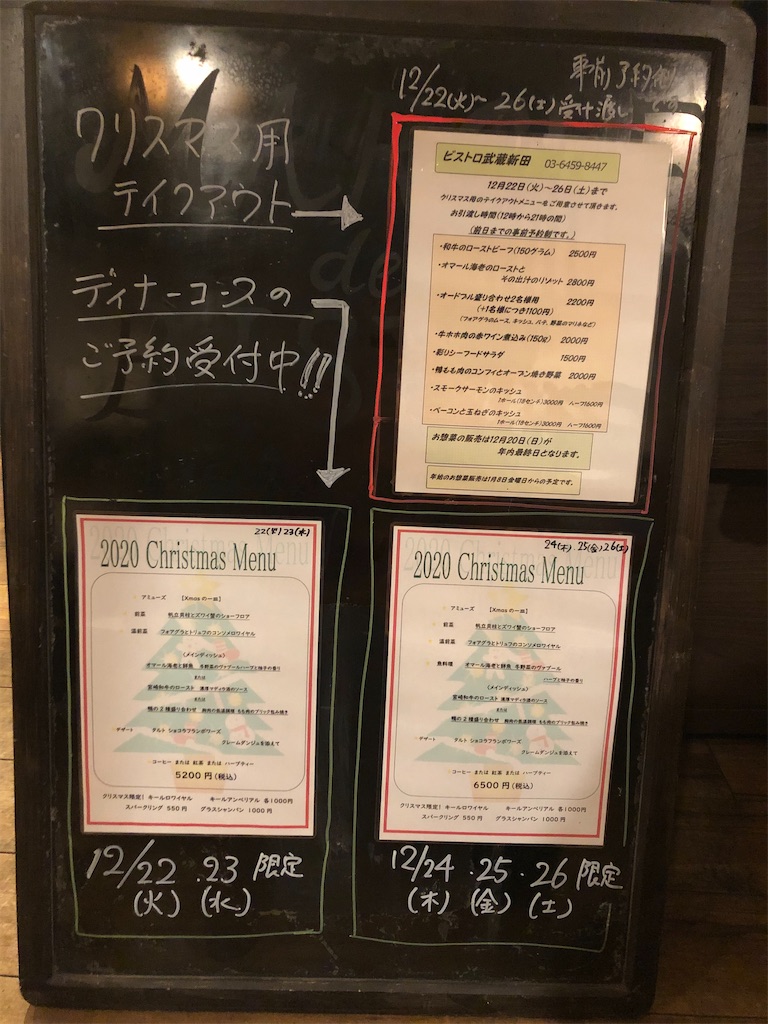 クリスマス用
テイクアウト
ディナーコースの
ご予約受付中!!
事前予約制
12/22(火)~26(土)受け渡し です
ビストロ武蔵新田 03-6459-8447
12月22日(火)~26日(土)まで
クリスマス用のテイクアウトメニューをご用意させて頂きます。
お引渡し時間(12時から21時の間)
(前日までの事前予約制です。)
・和牛のローストビーフ(150グラム) 2500円
・オマール海老のローストと
その出汁のリゾット 2800円
・オードブル盛り合わせ2名様用 2200円
(+1名様につき1100円)
(フォアグラのムース、キッシュ、パテ、野菜のマリネなど)
・牛ホホ肉の赤ワイン煮込み(150g) 2000円
・彩りシーフードサラダ 1500円
・鴨もも肉のコンフィとオーブン焼き野菜 2000円
・スモークサーモンのキッシュ
1ホール(18センチ)3000円 ハーフ1600円
・ベーコンと玉ねぎのキッシュ
1ホール(18センチ)3000円 ハーフ1600円
お惣菜の販売は12月20日(日)が
年内最終日となります。
年始のお惣菜販売は1月8日金曜日からの予定です。
22(火)23(水)
2020 Christmas Menu
アミューズ 【Xmasの一皿】
前菜 帆立貝柱とズワイ蟹のショーフロア
温前菜 フォアグラとトリュフのコンソメロワイヤル
〈メインディッシュ〉
オマール海老と鮮魚 冬野菜のヴァプール ハーブと柚子の香り
または
宮崎和牛のロースト 濃厚マディラ酒のソース
または
鴨の2種盛り合わせ 胸肉の低温調理 もも肉のブリック包み焼き
デザート タルト ショコラフランボワーズ
クレームダンジュを添えて
コーヒー または 紅茶 または ハーブティー
5200円(税込)
クリスマス限定! キールロワイヤル キールアンペリアル 各1000円
スパークリング 550円 グラスシャンパン 1000円
12/22 .23 限定
(火) (水)
24(木) 25(金) 26(土)
2020 Christmas Menu
アミューズ 【Xmasの一皿】
前菜 帆立貝柱とズワイ蟹のショーフロア
温前菜 フォアグラとトリュフのコンソメロワイヤル
魚料理 オマール海老と鮮魚 冬野菜のヴァプール
ハーブと柚子の香り
〈メインディッシュ〉
宮崎和牛のロースト 濃厚マディラ酒のソース
または
鴨の2種盛り合わせ 胸肉の低温調理 もも肉のブリック包み焼き
デザート タルト ショコラフランボワーズ
クレームダンジュを添えて
コーヒー または 紅茶 または ハーブティー
6500円(税込)
クリスマス限定! キールロワイヤル キールアンペリアル 各1000円
スパークリング 550円 グラスシャンパン 1000円
12/24 .25 .26 限定
(木) (金) (土)